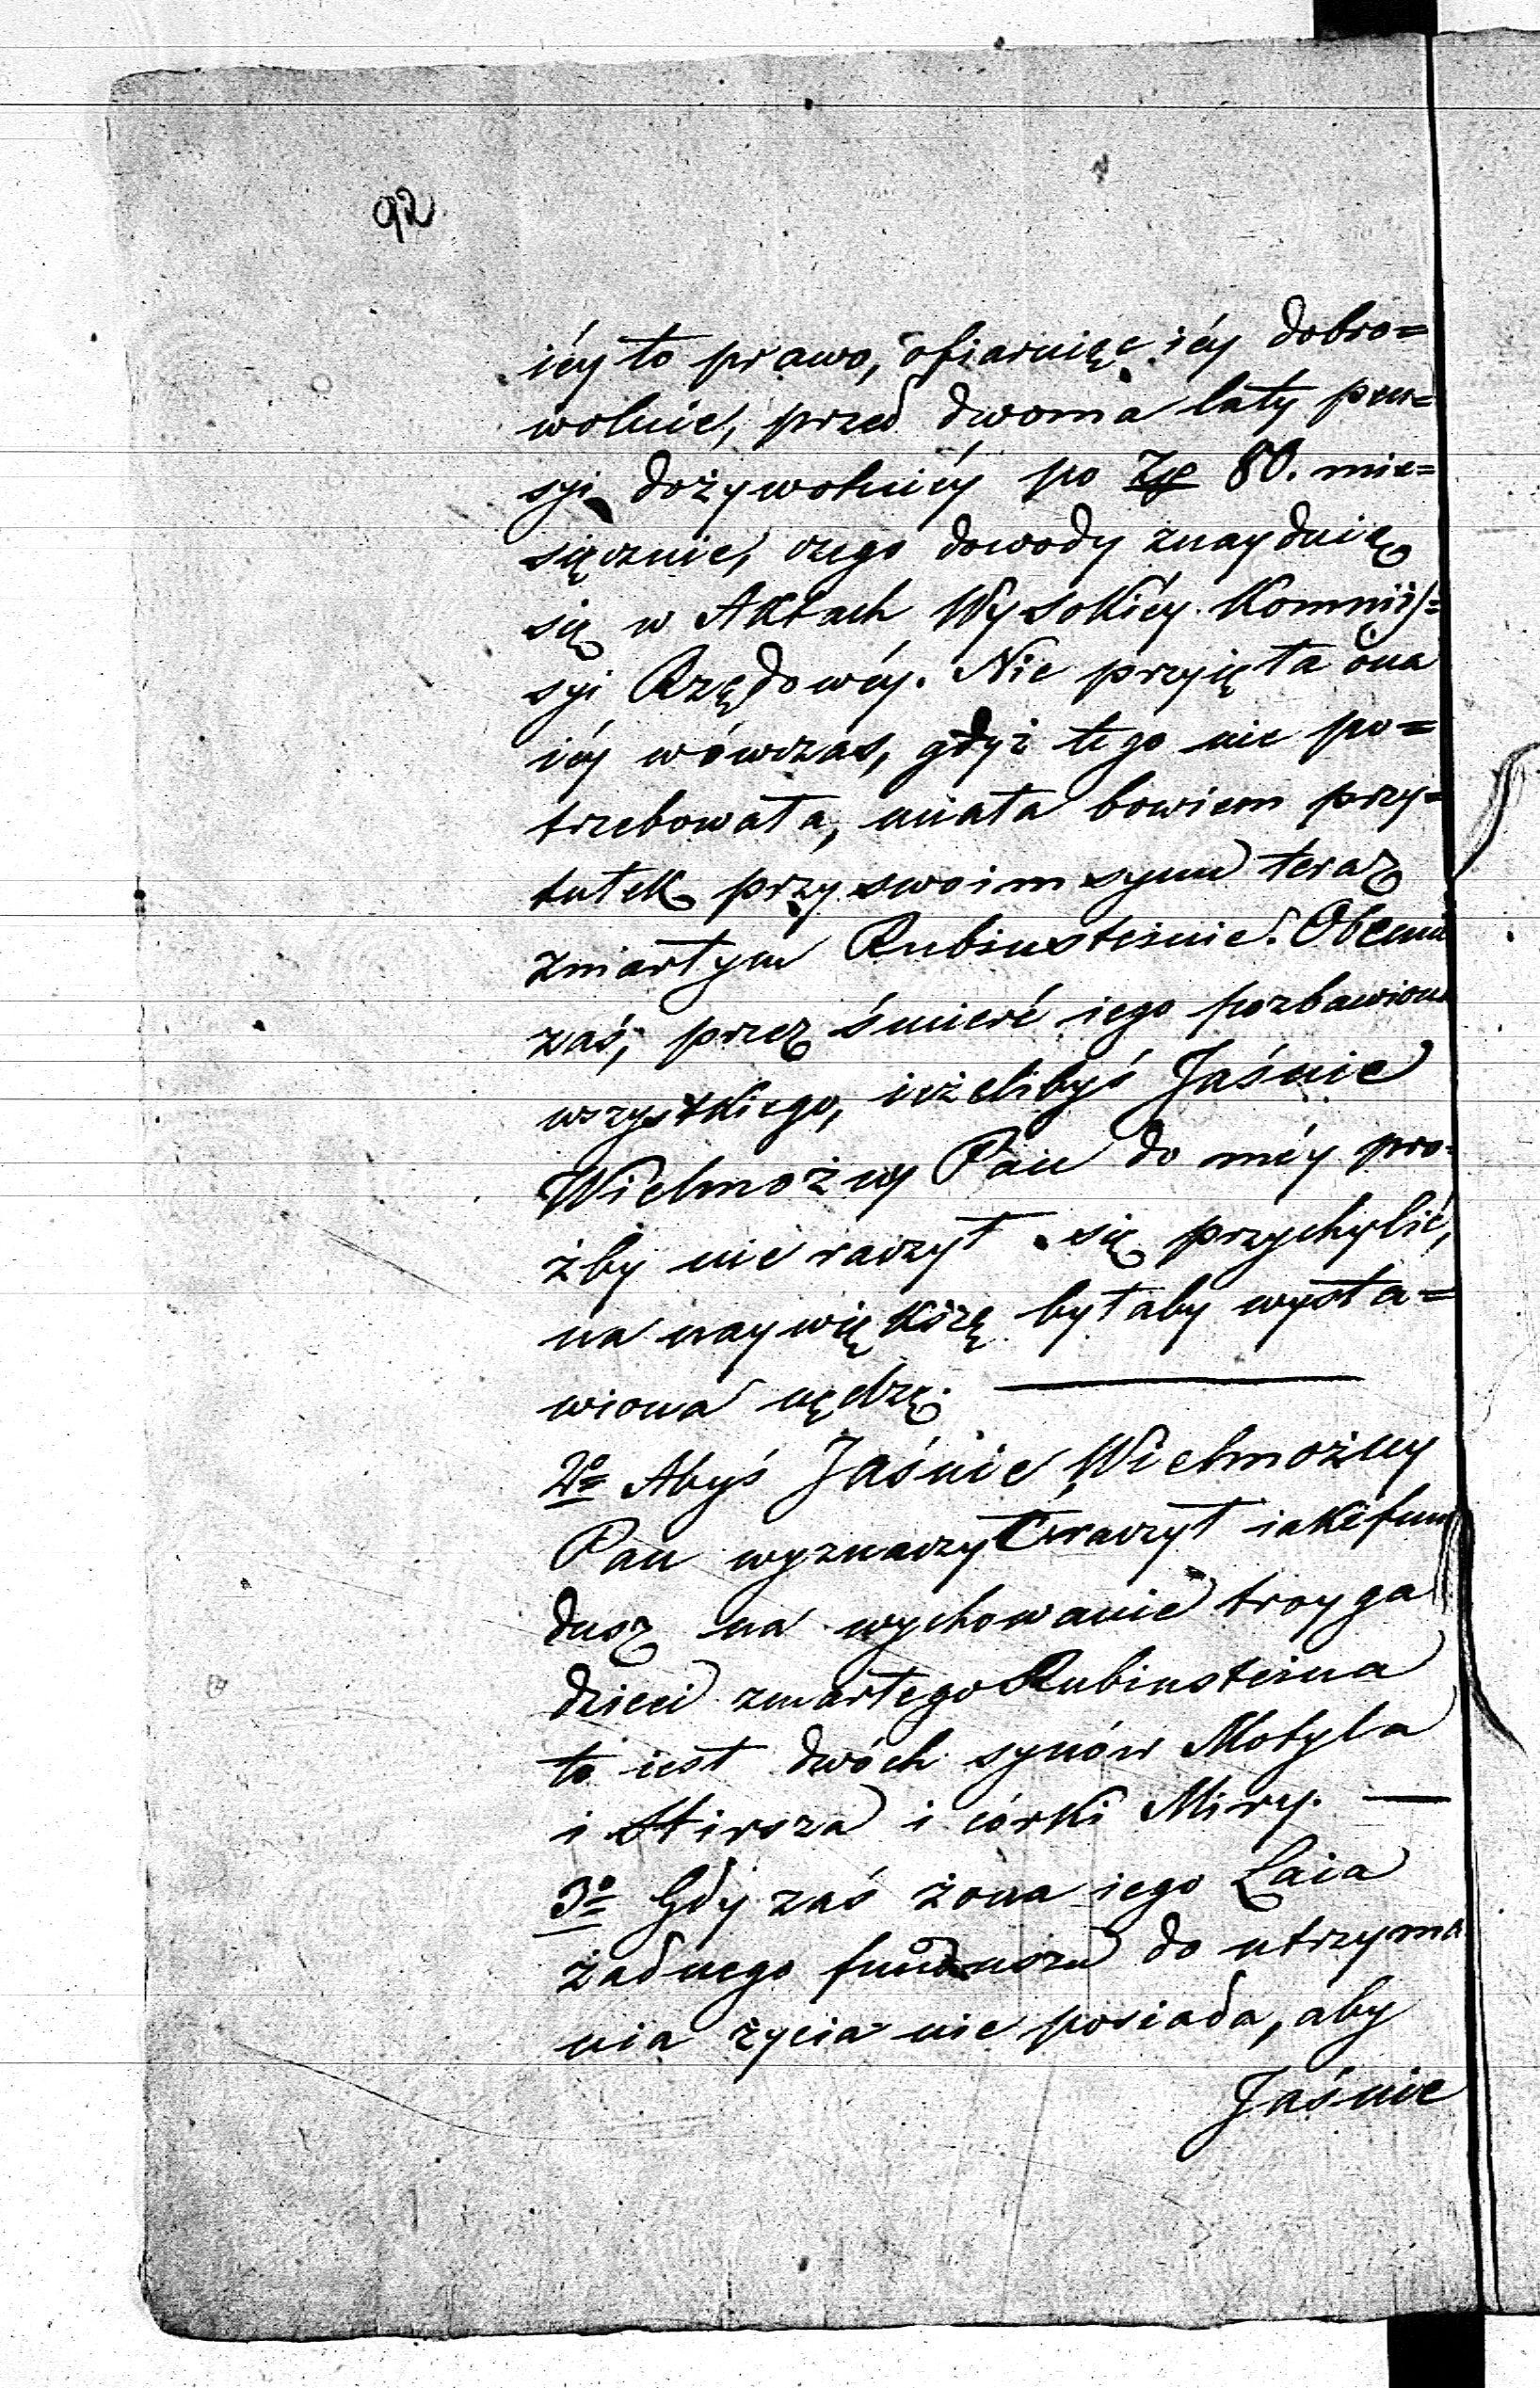 92
iéy to prawo, ofiaruiąc iéy dobro=
wolnie, przed dwoma laty pen=
syi dożywotniéy po Złp 80. mie=
sięcznie, czego dowody znayduią
się w Aktach Wysokiéy Kommis=
syi Rządowéy. Nie przyięła ona
iéy wówczas, gdyż tego nie po=
trzebowała, miała bowiem przy=
tułek przy swoim synu teraz
zmarłym Rubinsteinie. Obecnie
zaś, przez śmierć iego pozbawiona
wszystkiego, ieżelibyś Jaśnie
Wielmożny Pan do méy pro=
żby nie raczył się przychylić,
na naywiększą byłaby wysta=
wiona nędzę.
2o Abyś Jaśnie Wielmożny
Pan wyznaczyć raczył iaki fun
dusz na wychowanie troyga
dzieci zmarłego Rubinsteina
to iest dwóch synów Motyla
i Hirsza i córki Miry. —
3o Gdy zaś żona iego Łaia
żadnego funduszu do utrzyma
nia życia nie posiada, aby
Jaśnie